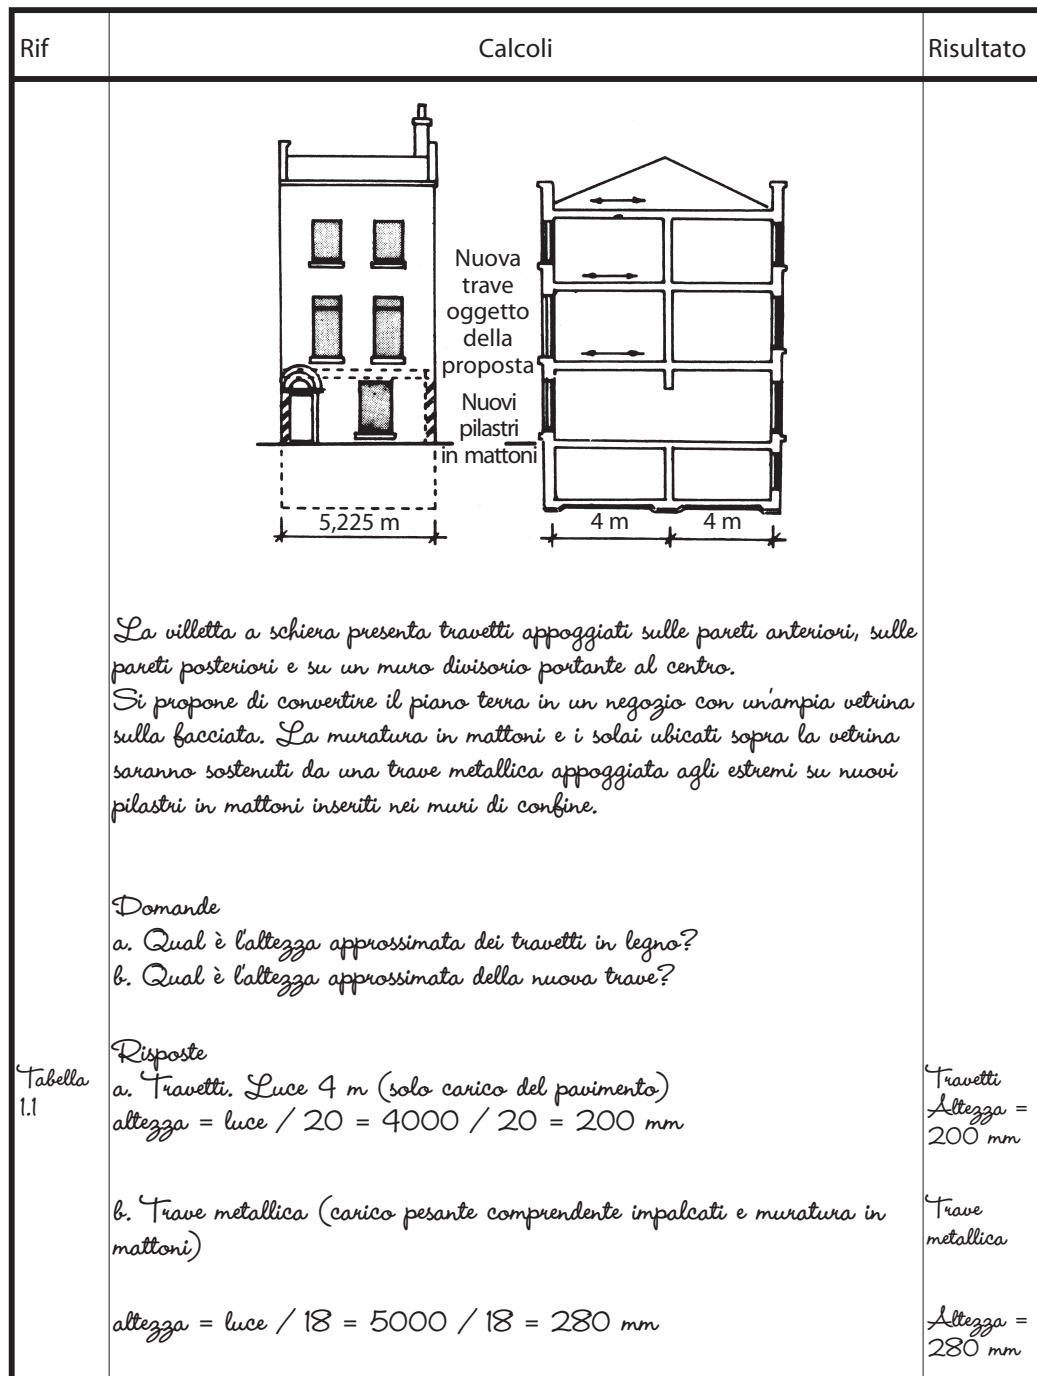 Rif
Calcoli
Risultato
Nuova
trave
oggetto
della
proposta
Nuovi
pilastri
in mattoni
5,225 m
4 m
4 m
La villetta a schiera presenta travetti appoggiati sulle pareti anteriori, sulle
pareti posteriori e su un muro divisorio portante al centro.
Si propone di convertire il piano terra in un negozio con un'ampia vetrina
sulla facciata. La muratura in mattoni e i solai ubicati sopra la vetrina
saranno sostenuti da una trave metallica appoggiata agli estremi su nuovi
pilastri in mattoni inseriti nei muri di confine.
Domande
a. Qual è l'altezza approssimata dei travetti in legno?
b. Qual è l'altezza approssimata della nuova trave?
Risposte
Tabella
1.1
a. Travetti. Luce 4 m (solo carico del pavimento)
altezza = luce / 20 = 4000 / 20 = 200 mm
Travetti
Altezza =
200 mm
b. Trave metallica (carico pesante comprendente impalcati e muratura in
mattoni)
Trave
metallica
altezza = luce / 18 = 5000 / 18 = 280 mm
Altezza =
280 mm